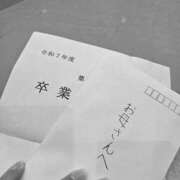 令和7年度
卒業
お母さんへ